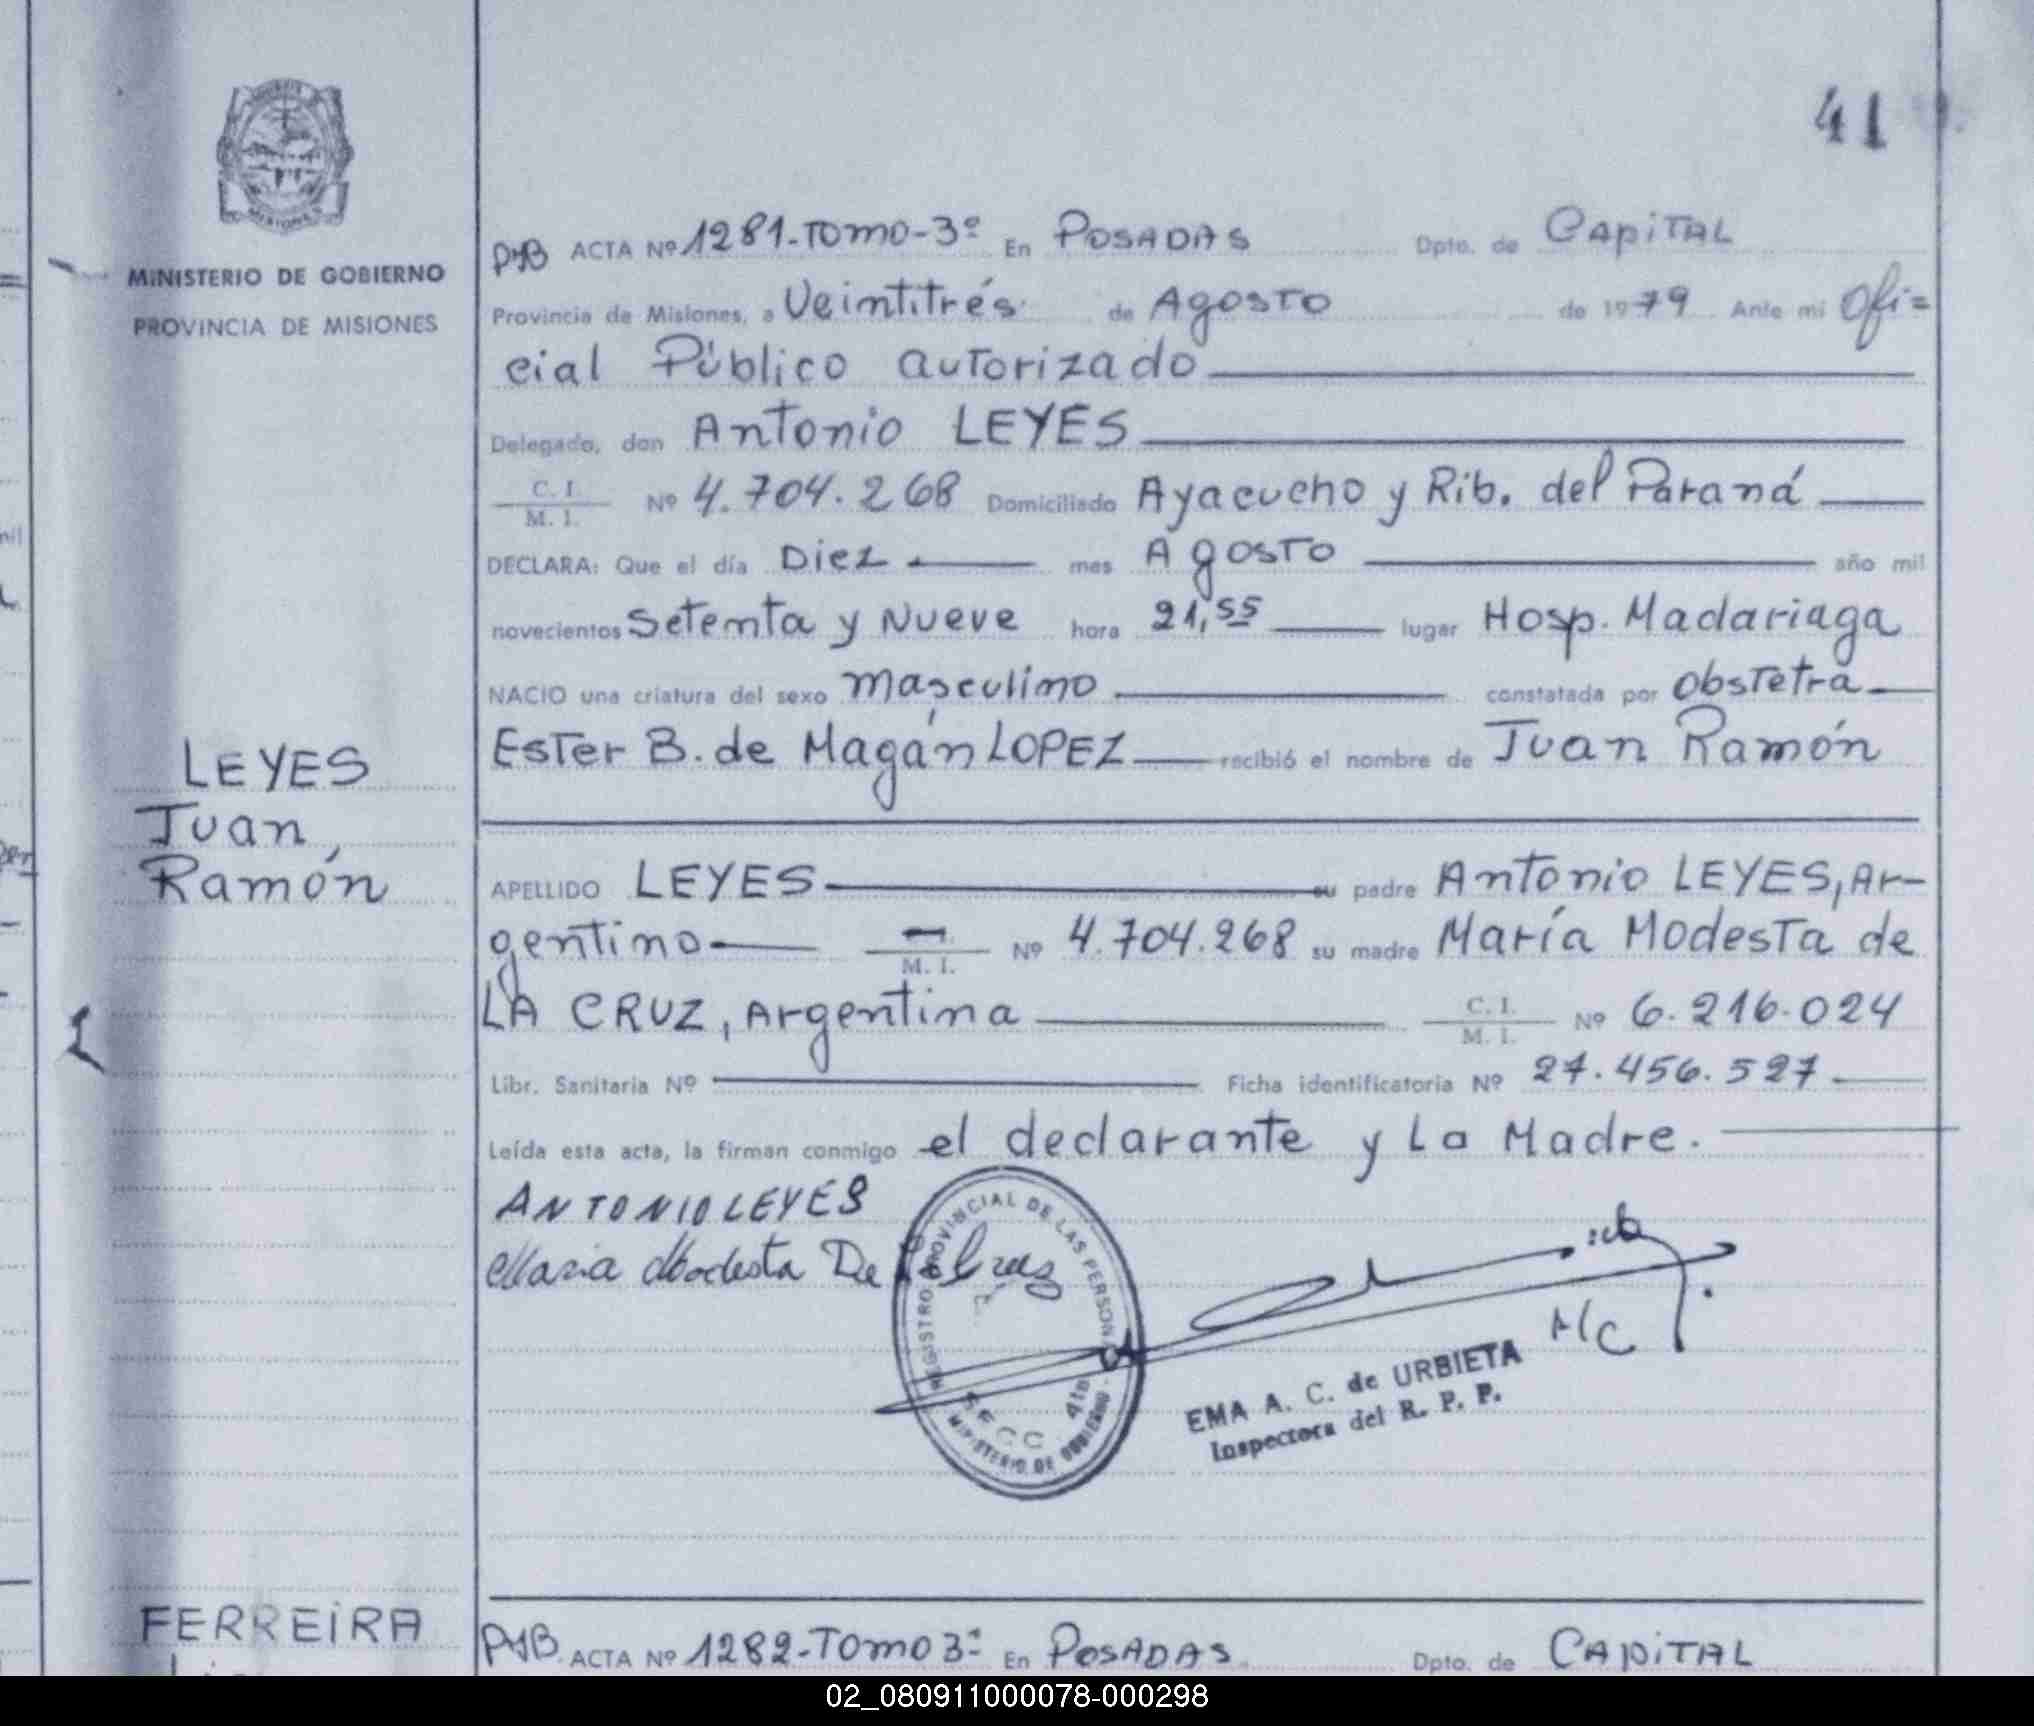 41
MINISTERIO DE GOBIERNO
PROVINCIA DE MISIONES
ACTA Nº 1281-Tomo-3º En POSADAS Dpto. de CAPITAL
Provincia de Misiones, a Veintitrés de Agosto de 1979 Ante mi Ofi=
cial Público autorizado
Delegado, don Antonio LEYES
C. I.
M. I. Nº 4.704.268 Domiciliado Ayacucho y Rib. del Paraná
DECLARA: Que el día Diez mes Agosto año mil
novecientos Setenta y Nueve hora 21,55 lugar Hosp. Madariaga
NACIO una criatura del sexo masculino constatada por Obstetra
Ester B. de Magán LOPEZ recibió el nombre de Juan Ramón
LEYES
Juan
Ramón
APELLIDO LEYES su padre Antonio LEYES, Ar-
gentino M. I. Nº 4.704.268 su madre María Modesta de
LA CRUZ, Argentina C. I.
M. I. Nº 6.216.024
Libr. Sanitaria Nº Ficha identificatoria Nº 27.456.527
Leída esta acta, la firman conmigo el declarante y La Madre.
ANTONIO LEYES
Maria Modesta De la Cruz
REGISTRO PROVINCIAL DE LAS PERSONAS
SECC. 4ta
MINISTERIO DE GOBIERNO
EMA A. C. de URBIETA
Inspectora del R. P. P.
FERREIRA
ACTA Nº 1282-Tomo 3º En POSADAS Dpto. de CAPITAL
02_080911000078-000298